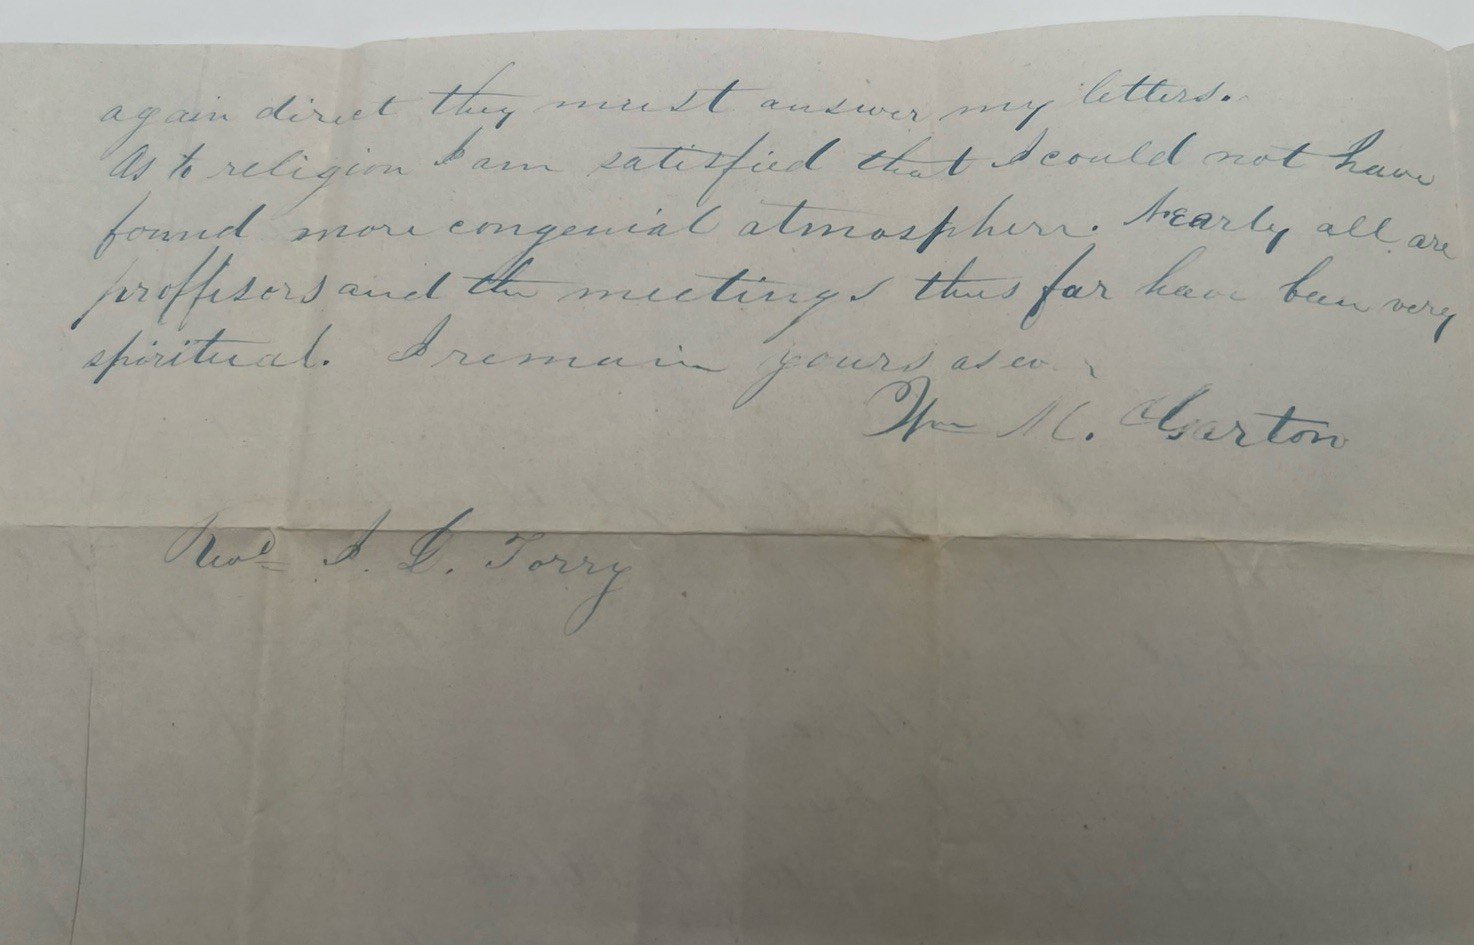 again direct they must answer my letters.
As to religion I am satisfied that I could not have
found more congenial atmosphere. Nearly all are
proffisors and the meetings thus far have been very
spiritual. I remain yours as ever
Wm M. Garton
Revd I. L. Torry